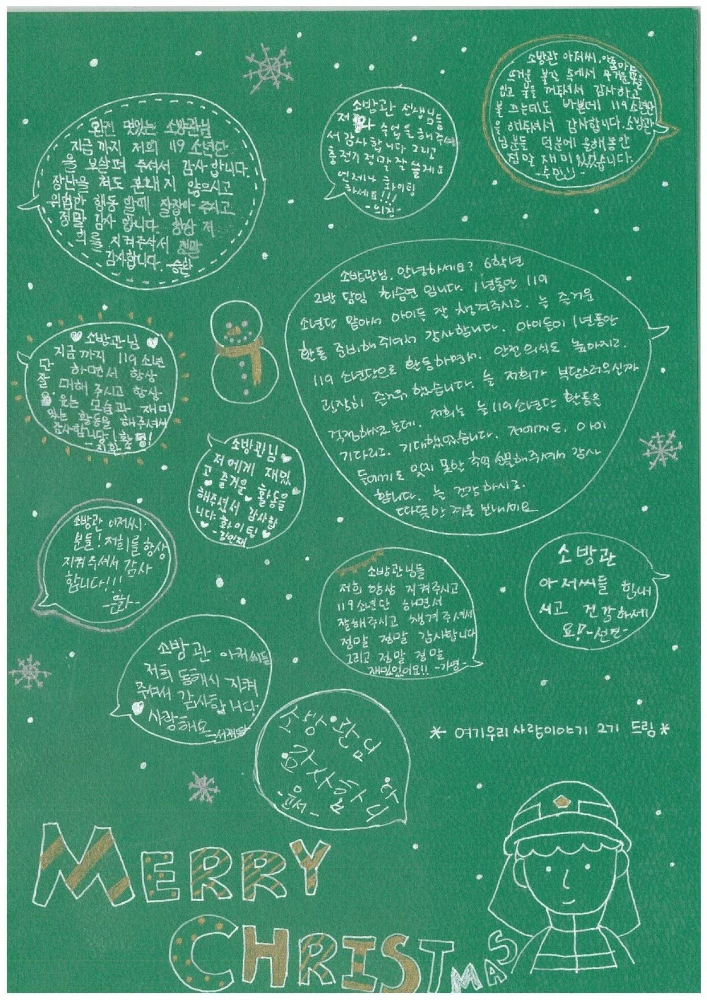 완전 멋있는 소방관님
지금 까지 저희 119 소년단
을 보살펴 주셔서 감사 합니다.
장난을 쳐도 혼내 지 않으시고
위험한 행동 할때 잘잡아 주시고
정말 감사 합니다. 항상 저
희를 지켜주셔서 정말
감사합니다.
소방관 선생님들
수업을 해주
서 감사 합니다 그리고
충전기 정말 잘 쓸게요
언제나 화이팅
하세요!!!
-의진-
소방관 아저씨,
뜨거운 불길 속에서
입고 불을 꺼주셔서 감사하고
불 끄는데도 바쁜데 119소년단
을 해주셔서 감사합니다. 소방관
님분들 덕분에 올해동안
정말 재미있었습니다.
-수민-
소방관님. 안녕하세요? 6학년
2반 담임 최승연 입니다. 1년동안 119
소년단 맡아서 아이들 잘 챙겨주시고. 늘 즐거운
활동 준비해 주셔서 감사합니다. 아이들이 1년동안
119 소년단으로 활동하면서. 안전 의식도 높아지고.
굉장히 즐거워 했습니다. 늘 저희가 부담스러우실까
걱정해오는데. 저희는 늘 119소년단 활동을
기다리고. 기대했었습니다. 저에게도. 아이
들에게도 잊지 못할 추억 선물해주셔서 감사
합니다. 늘 건강하시고.
따뜻한 겨울 보내세요
소방관님
지금까지 119 소년
단 하면서 항상
잘 대해 주시고 항상
웃는 모습과 재미
있는 활동을 해주셔서
감사합니당! 활
소방관님
저에게 재밌
고 즐거운 활동을
해주셨서 감사합
니다. 화이팅
소방관 아저씨.
분들! 저희를 항상
지켜주셔서 감사
합니다!!!
소방관님들
저희 항상 지켜주시고
119소년단 하면서
잘해주시고 챙겨주셔서
정말 정말 감사합니다
그리고 정말 정말
재밌었어요!!
소방관
아저씨들 힘내
시고 건강하세
요!
소방관 아저씨들
저희 동해시 지켜
주셔서 감사합니다.
사랑해요
소방관님
감사합니다
-윤서-
* 여기우리 사랑이야기 2기 드림 *
MERRY
CHRISTMAS